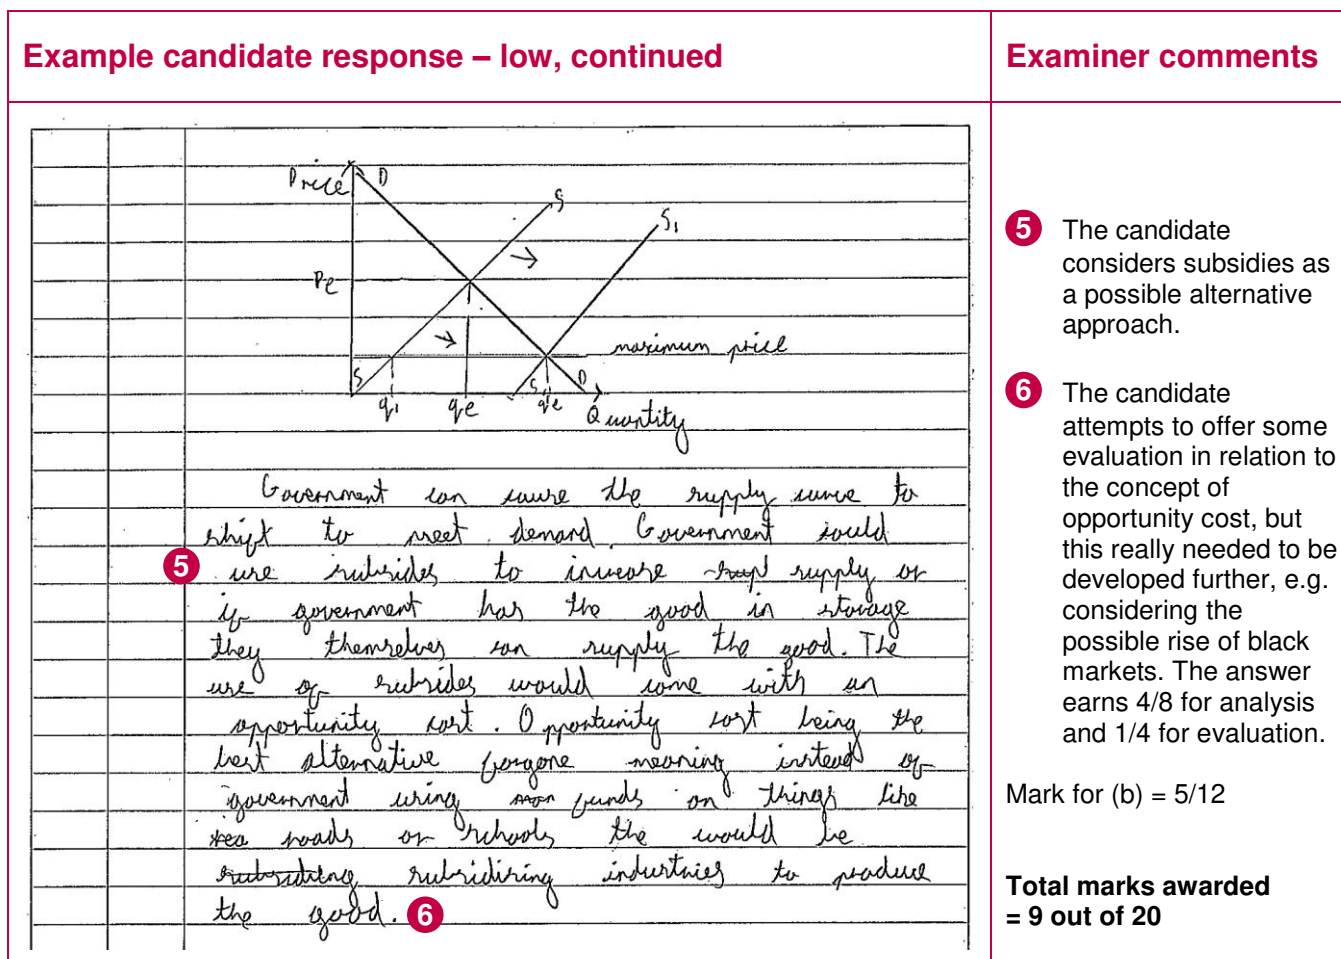 Example candidate response – low, continued
Examiner comments
Price
D
S
S1
Pe
maximum price
S
S1
D
q1
qe
qe
Quantity
Government can cause the supply curve to
shift to meet demand. Government could
5 use subsides to increase supply or
if government has the good in storage
they themselves can supply the good. The
use of subsides would come with an
opportunity cost. Opportunity cost being the
best alternative forgone meaning instead of
government using funds on things like
roads or schools the would be
subsidising industries to produce
the good. 6
5 The candidate
considers subsidies as
a possible alternative
approach.
6 The candidate
attempts to offer some
evaluation in relation to
the concept of
opportunity cost, but
this really needed to be
developed further, e.g.
considering the
possible rise of black
markets. The answer
earns 4/8 for analysis
and 1/4 for evaluation.
Mark for (b) = 5/12
Total marks awarded
= 9 out of 20